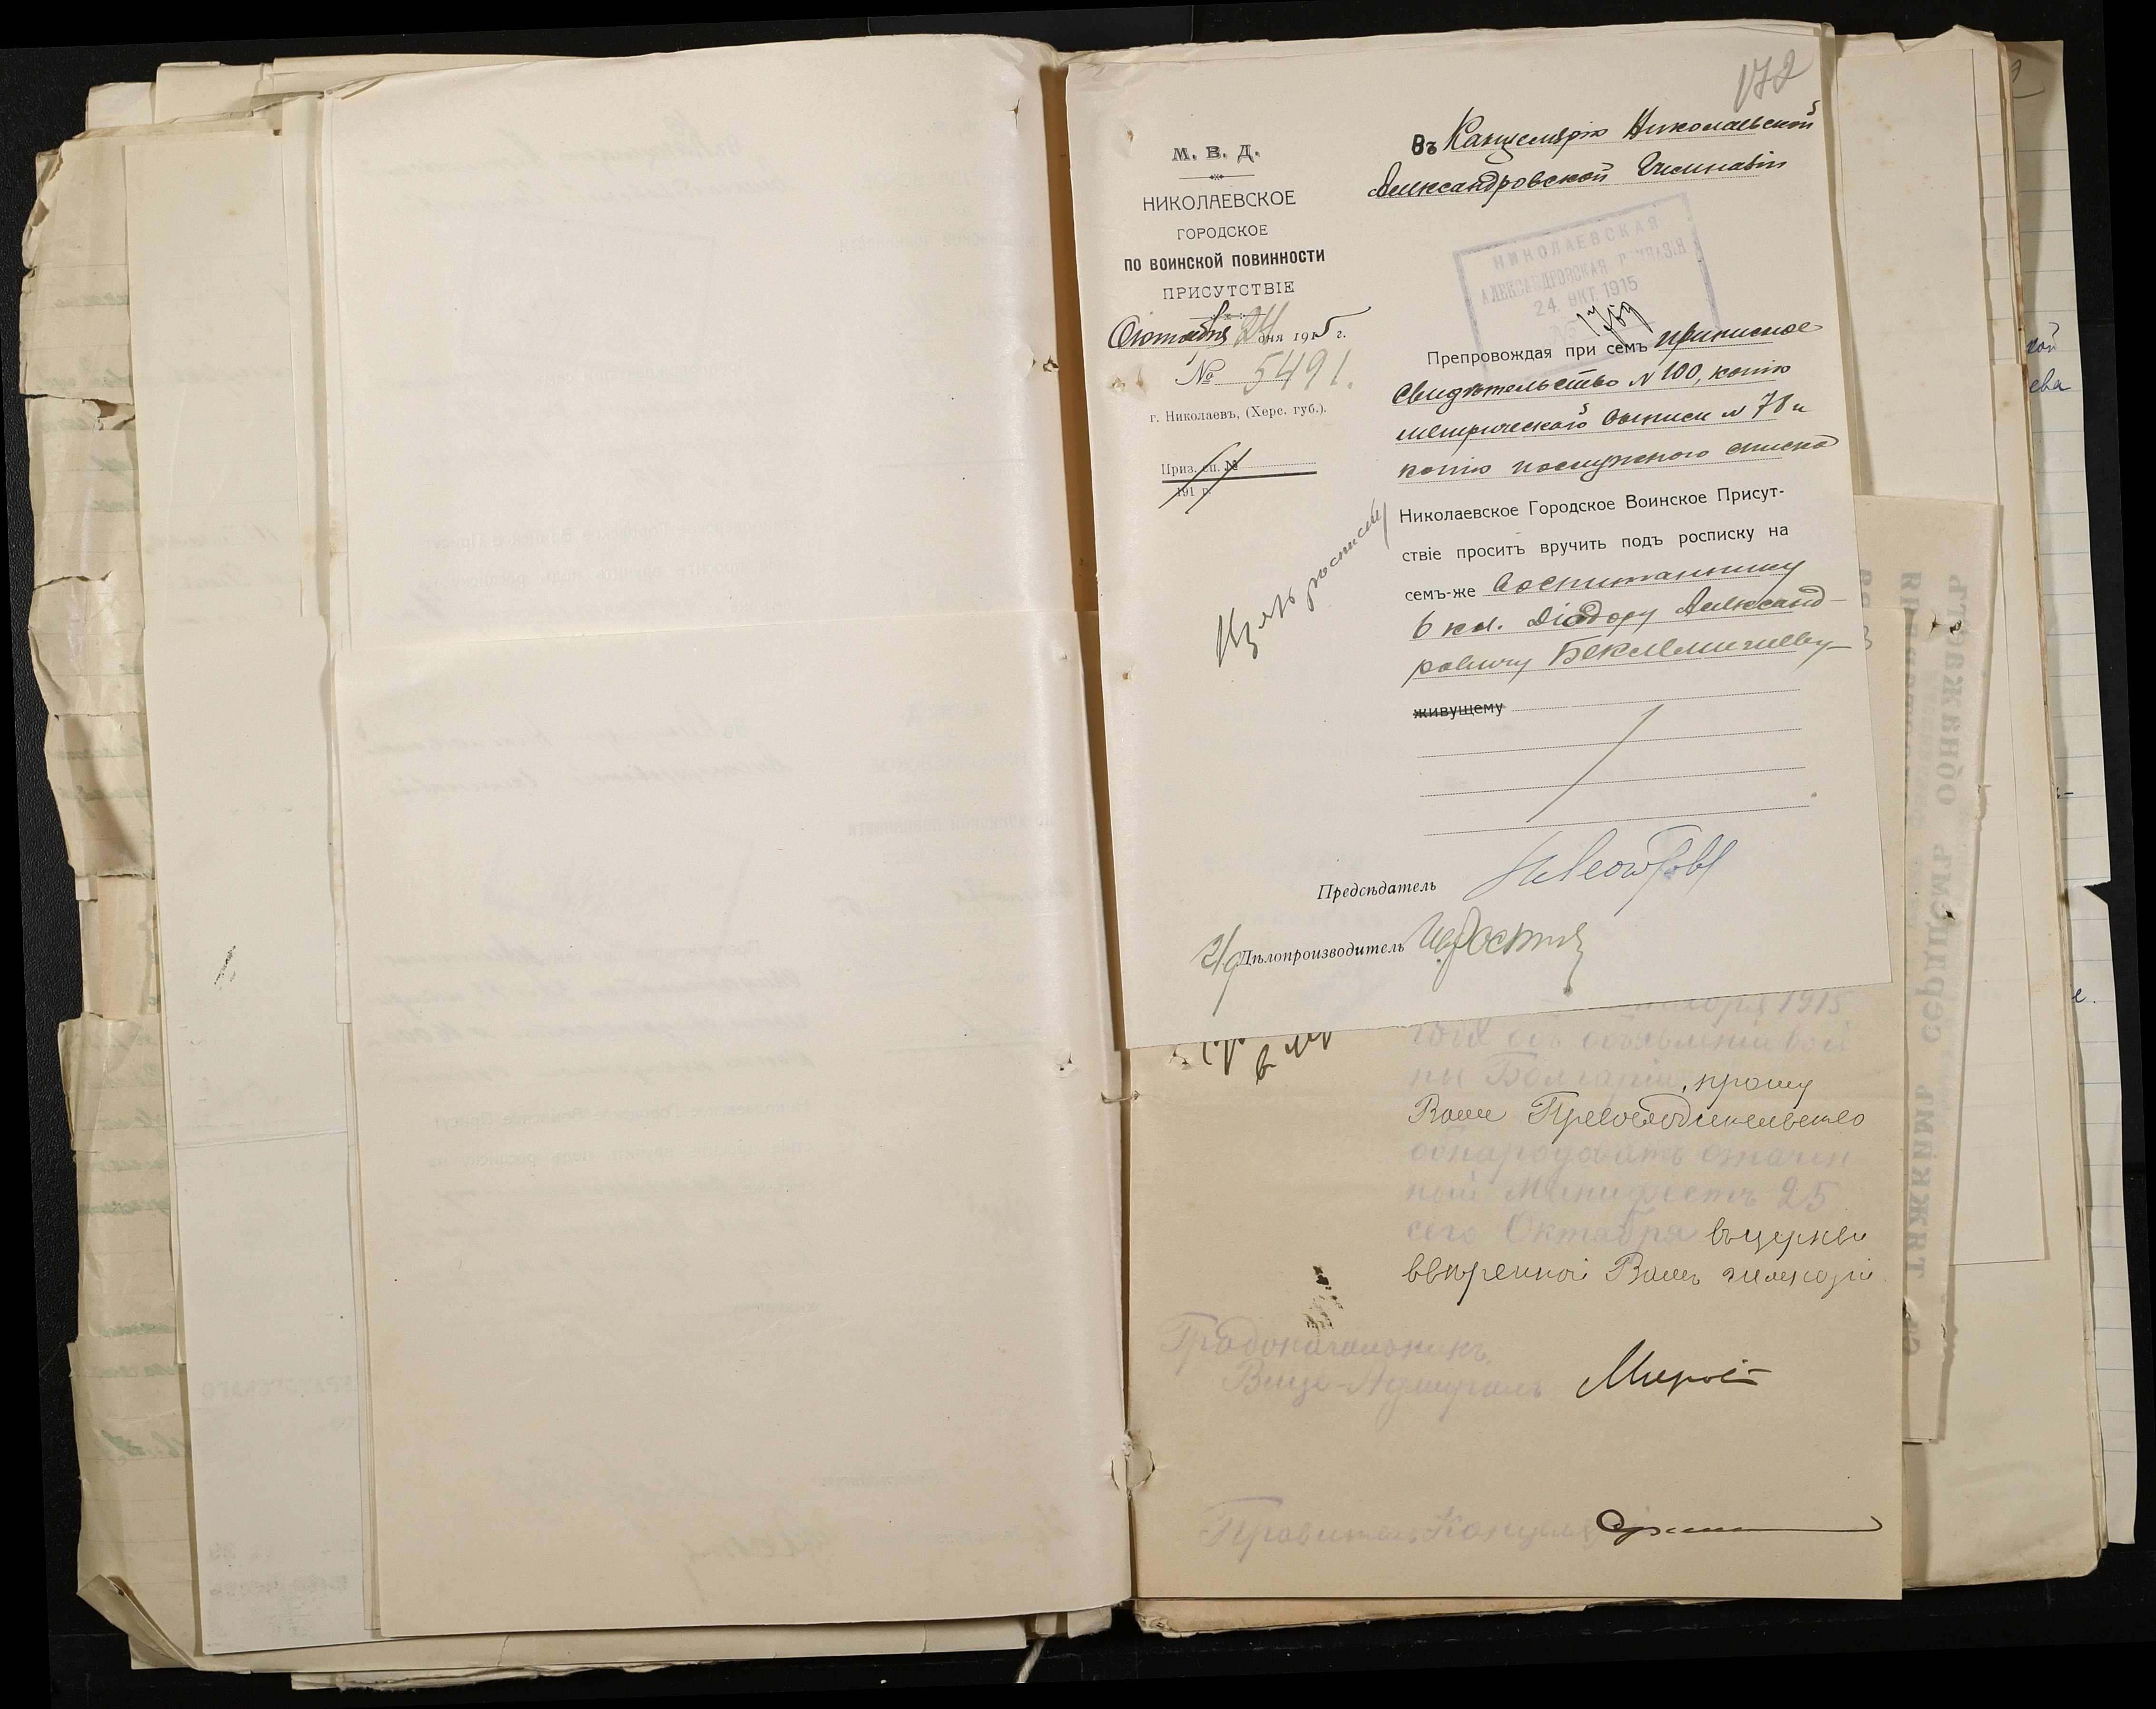 172
М. В. Д.
НИКОЛАЕВСКОЕ
ГОРОДСКОЕ
ПО ВОИНСКОЙ ПОВИННОСТИ
ПРИСУТСТВІЕ
Октября 24 дня 1915 г.
№ 5491.
г. Николаевъ, (Херс. губ.).
Приз. сп. №
191 г.
Въ Канцелярію Николаевской
Александровской Гимназіи
НИКОЛАЕВСКАЯ
АЛЕКСАНДРОВСКАЯ ГИМНАЗІЯ
24 ОКТ 1915
1789
Препровождая при семъ приписное
свидѣтельство № 100, копію
метрической выписи № 78 и
копію послужного списка
Николаевское Городское Воинское Присут-
ствіе проситъ вручить подъ росписку на
семъ-же воспитаннику
6 кл. Діодору Александ-
ровичу Беклемишеву
живущему
Предсѣдатель
Дѣлопроизводитель
1915
года объ объявленіи вой
ны Болгаріи, прошу
Ваше Превосходительство
обнародовать означен
ный Манифестъ 25
сего Октября въ церкви
ввѣренной Вамъ гимназіи
Градоначальникъ,
Вице-Адмиралъ
Правитель Канцеля